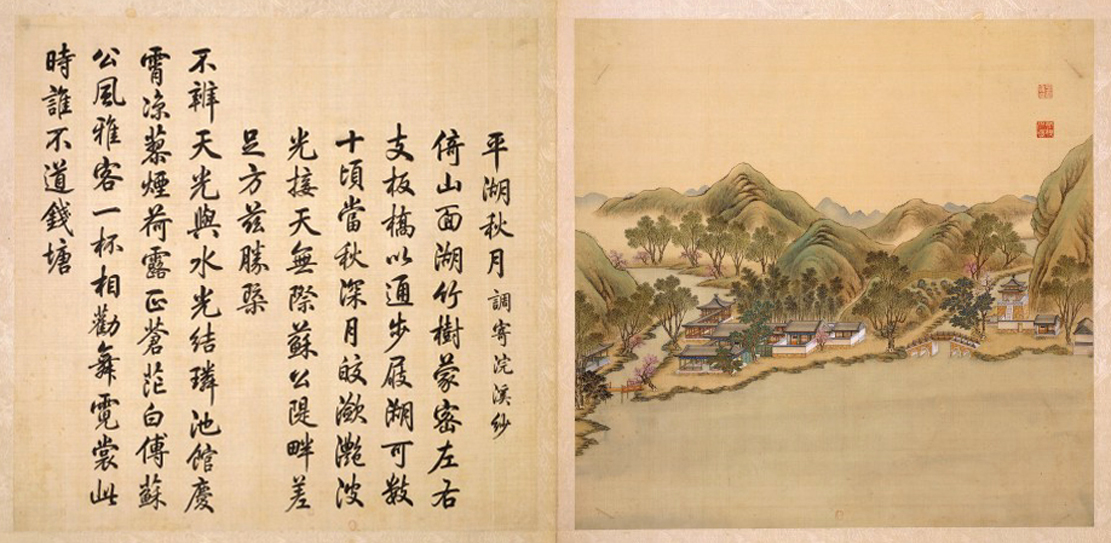 平湖秋月 調寄浣溪紗
倚山面湖竹樹蒙密左右
支板橋以通步屐湖可數
十頃當秋深月皎瀲灧波
光接天無際蘇公隄畔差
足方茲勝槩
不辨天光與水光結璘池館慶
霄涼蓼煙荷露正蒼茫白傅蘇
公風雅客一杯相勸舞霓裳此
時誰不道錢塘